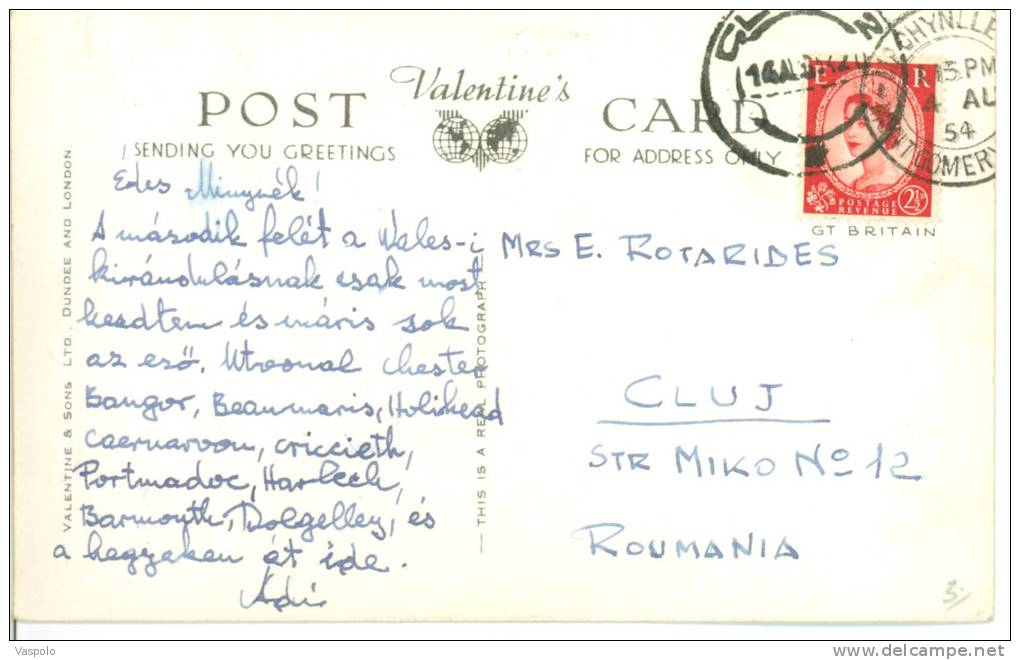 POST Valentine's CARD
SENDING YOU GREETINGS
FOR ADDRESS ONLY
Edes Minynék!
A második felét a Wales-i
kirándulásnak csak most
kezdtem és máris sok
az eső. Utvonal Chester
Bangor, Beaumaris, Holihead
Caernarvon, Criccieth,
Portmadoc, Harlech,
Barmouth, Dolgelley, és
a hegyeken át ide.
Ádi
VALENTINE & SONS LTD. DUNDEE AND LONDON.
THIS IS A REAL PHOTOGRAPH
MRS E. ROTARIDES
CLUJ
STR MIKO No 12
ROUMANIA
E R
POSTAGE
REVENUE 2½D
GT BRITAIN
15 PM
4 AU
54
MONTGOMERY
3.
Vaspolo
http://www.delcampe.net